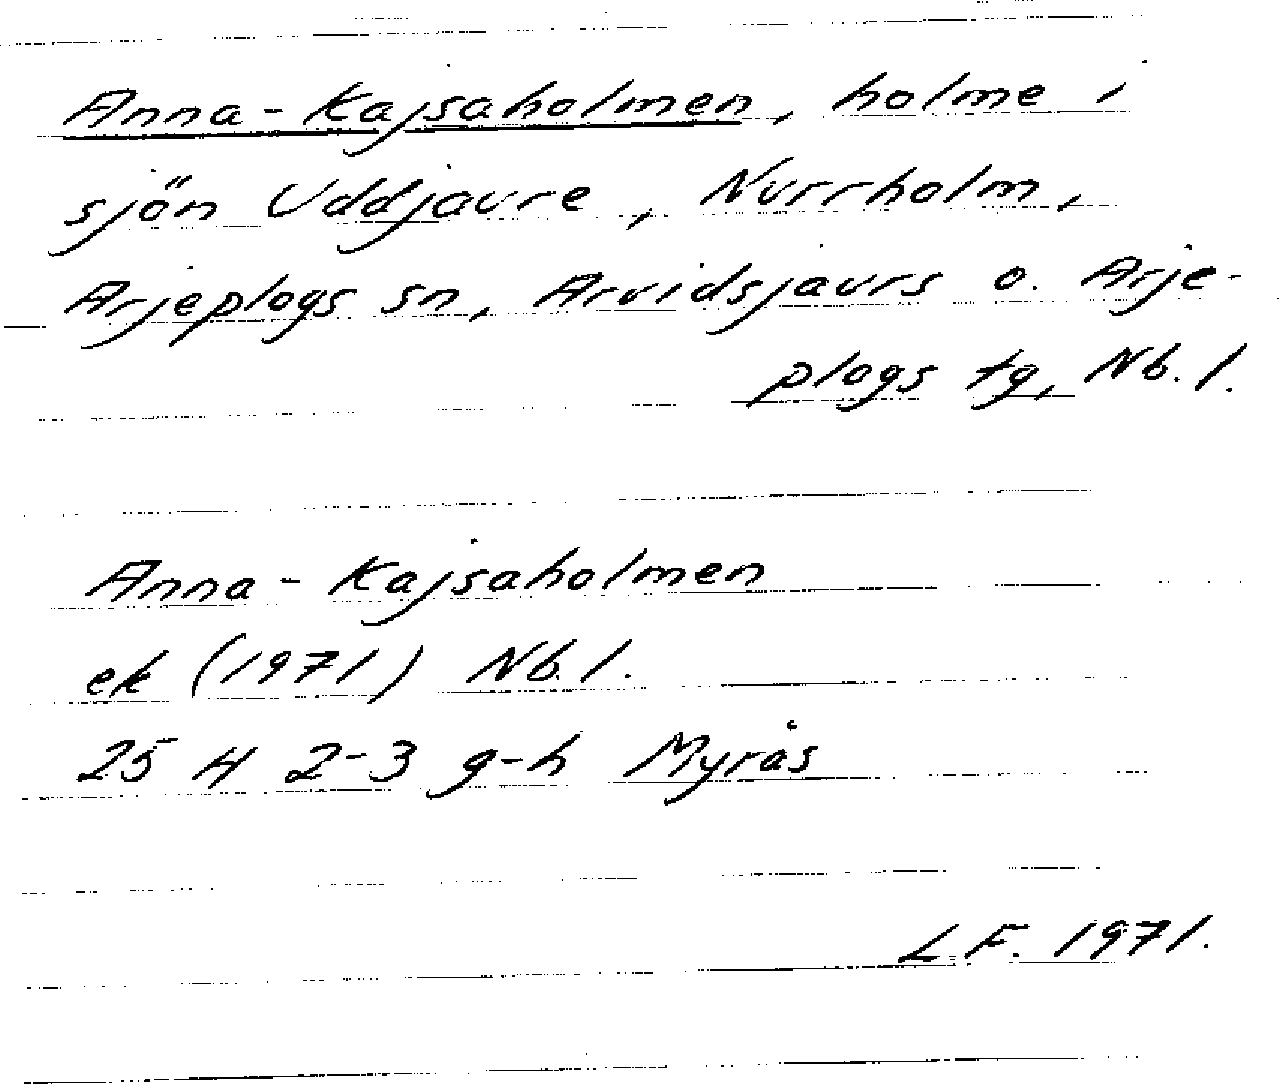 Anna-Kajsaholmen, holme i
sjön Uddjaure, Nurrholm,
Arjeplogs sn, Arvidsjaurs o. Arje-
plogs tg, Nb.l.
Anna-Kajsaholmen
ek (1971) Nb.l.
25 H 2-3 g-h Myrås
L.F. 1971.